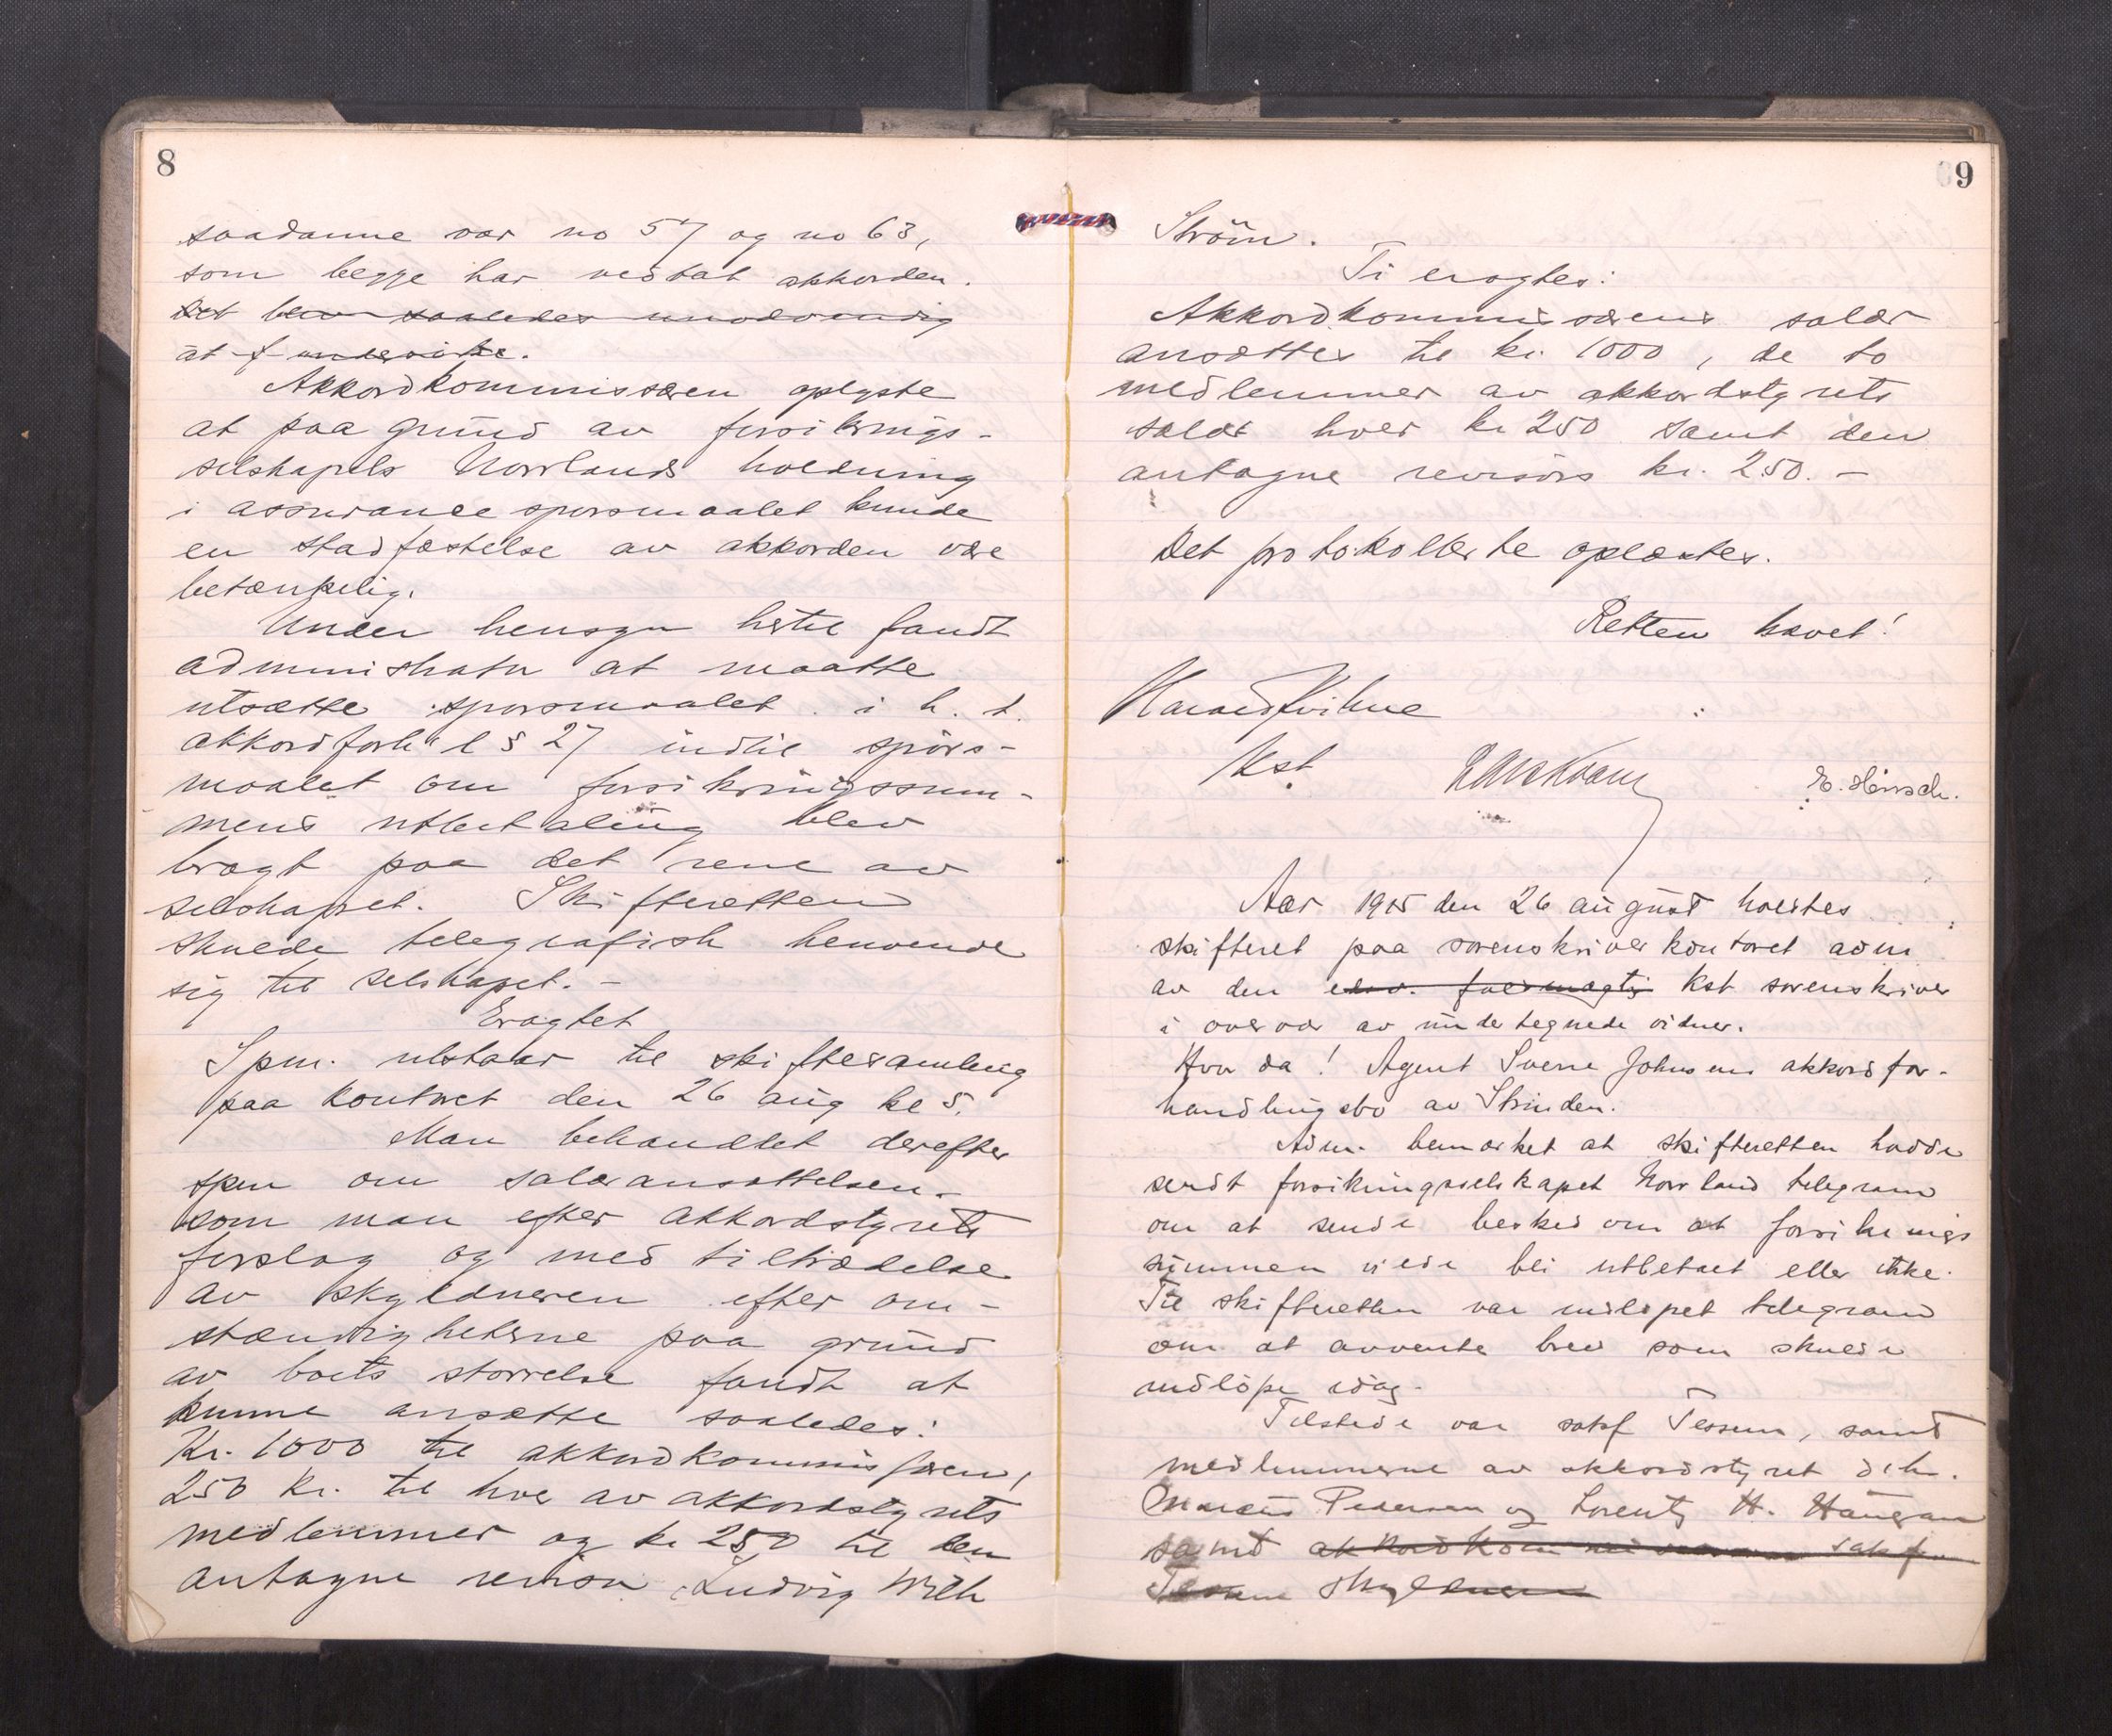 8
saadanne var no 57 og no 63,
som begge har vedtat akkorden.
Det blev saaledes unødvendig
at f undersøke.
Akkordkommissæren oplyste
at paa grund av forsikrings-
selskapets Norrlands holdning
i assurancespørsmaalet kunde
en stadfæstelse av akkorden være
betænkelig.
Under hensyn hertil fandt
administrator at maatte
utsætte spørsmaalet i h. t.
akkordforh l § 27 indtil spørs-
maalet om forsikringssum-
mens utbetaling blev
bragt paa det rene av
selskapet. Skifteretten
skulde telegrafisk henvende
sig til selskapet. -
Eragtet
Spm. utstaar til skiftesamling
paa kontoret den 26 aug kl 5.
Man behandlet derefter
spm om salæransættelsen.
som man efter akkordstyrets
forslag og med tiltrædelse
av skyldneren efter om-
stændigheterne paa grund
av boets størrelse fandt at
kunne ansætte saaledes:
Kr. 1000 til akkordkommissæren,
250 kr. til hver av akkordstyrets
medlemmer og kr 250 til den
antagne revisor Ludvig Wilh
9
Strøm.
Ti eragtes:
Akkordkommissærens salær
ansættes til kr. 1000, de to
medlemmer av akkordstyrets
salær hver kr 250 samt den
antagne revisors kr. 250. -
Det protokollerte oplæstes.
Retten hævet!
Kst.
E. Hirsch.
Aar 1915 den 26 august holdtes
skifteret paa sorenskriverkontoret adm
av den edsv. fuldmægtig kst sorenskriver
i overvær av undertegnede vidner.
Hvor da! Agent Sverre Johnsens akkordfor-
handlingsbo av Strinden.
Adm. bemærket at skifteretten hadde
sendt forsikringsselskapet Norrland telegram
om at sende besked om at forsikrings
summen vilde bli utbetalt eller ikke.
Til skifteretten var indløpet telegram
om at avvente brev som skulde
indløpe idag.
Tilstede var sakf Tessem, samt
medlemmerne av akkordstyret d'hr.
Marius Pedersen og Lorentz H. Haugan
samt akkordkommissæren sakf
Tessem skyldneren